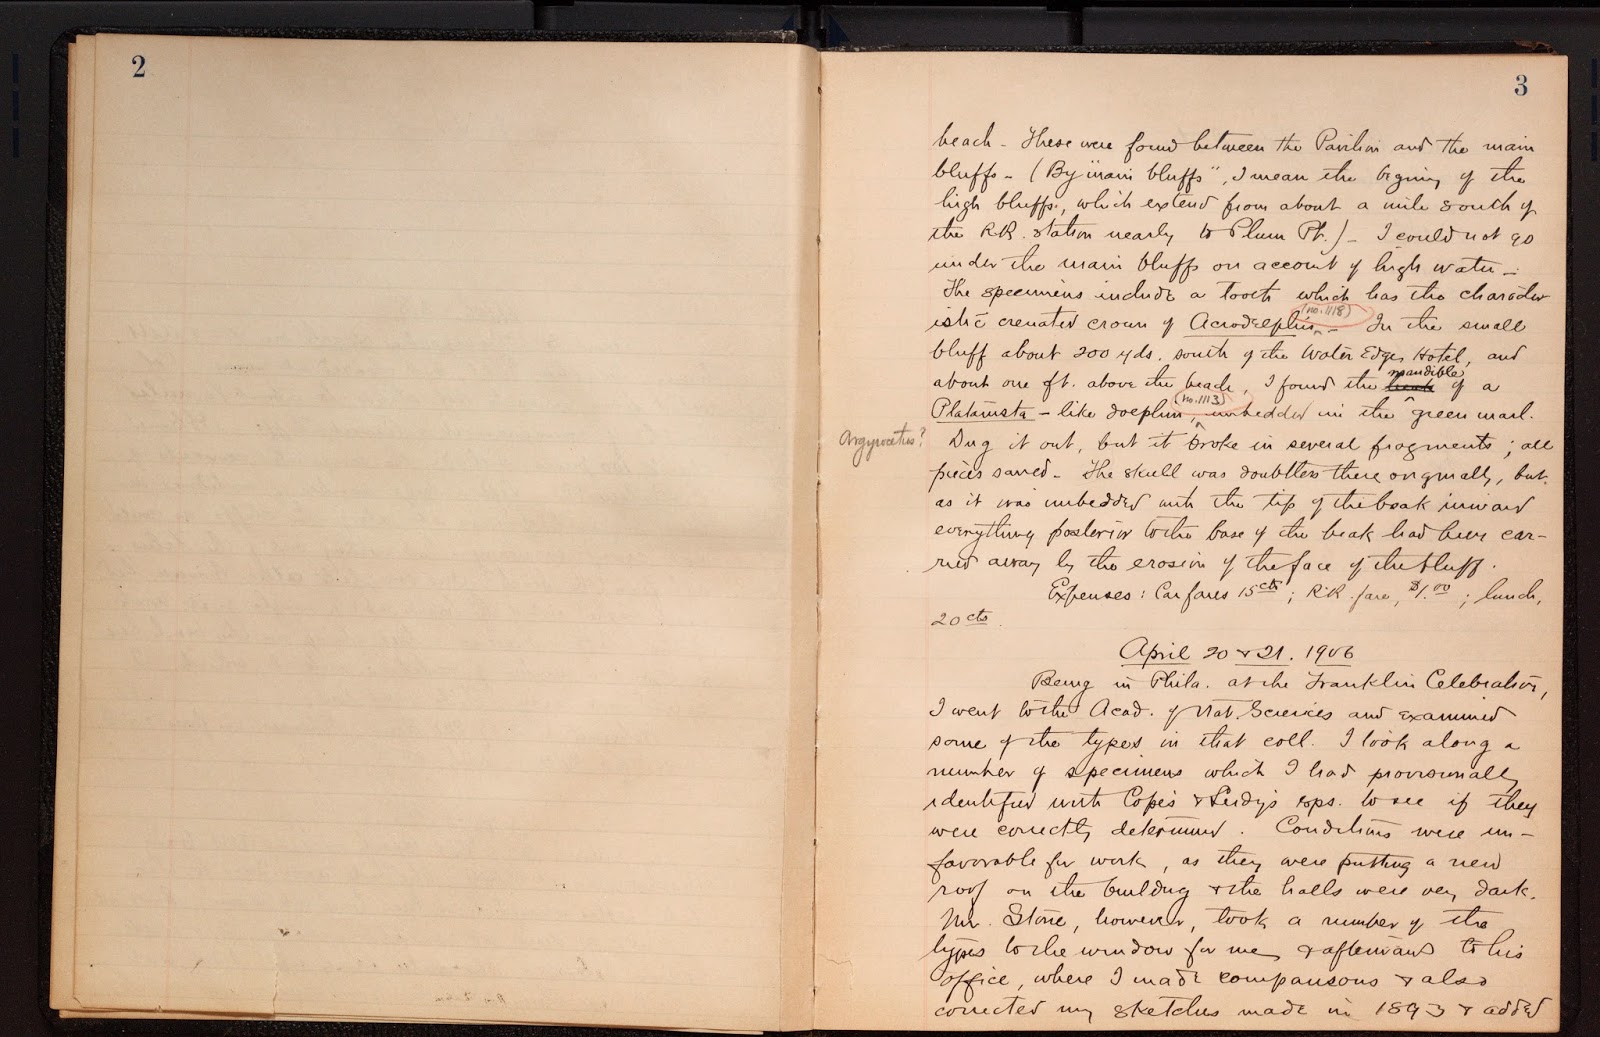 2
3
beach - These were found between the Pavilion and the main
bluffs - (By "main bluffs", I mean the begining of the
high bluffs, which extend from about a mile south of
the R.R. station nearly to Plum Pt.) - I could not go
under the main bluffs on account of high water -
The specimens include a tooth which has the character-
(no. 1118)
istic crenated crown of Acrodelphis - In the small
bluff about 200 yds. south of the Water Edge Hotel, and
mandible
about one ft. above the beach, I found the beak of a
(no. 1113)
Platanista - like dolphin, imbedded in the green marl.
Argyrocetus?
Dug it out, but it broke in several fragments; all
pieces saved - The skull was doubtless there originally, but
as it was imbedded with the tip of the beak inward
everything posterior to the base of the beak had been car-
ried away by the erosion of the face of the bluff.
Expenses: Car fares 15 cts; R.R. fare, $1.00; lunch,
20 cts.
April 20 & 21. 1906
Being in Phila. at the Franklin Celebration,
I went to the Acad. of Nat. Sciences and examined
some of the types in that coll. I took along a
number of specimens which I had provisionally
identified with Cope's & Leidy's sps. to see if they
were correctly determined. Conditions were un-
favorable for work, as they were putting a new
roof on the building & the halls were very dark.
Mr. Stone, however, took a number of the
types to the window for me & afterward to his
office, where I made comparisons & also
corrected my sketches made in 1893 & added